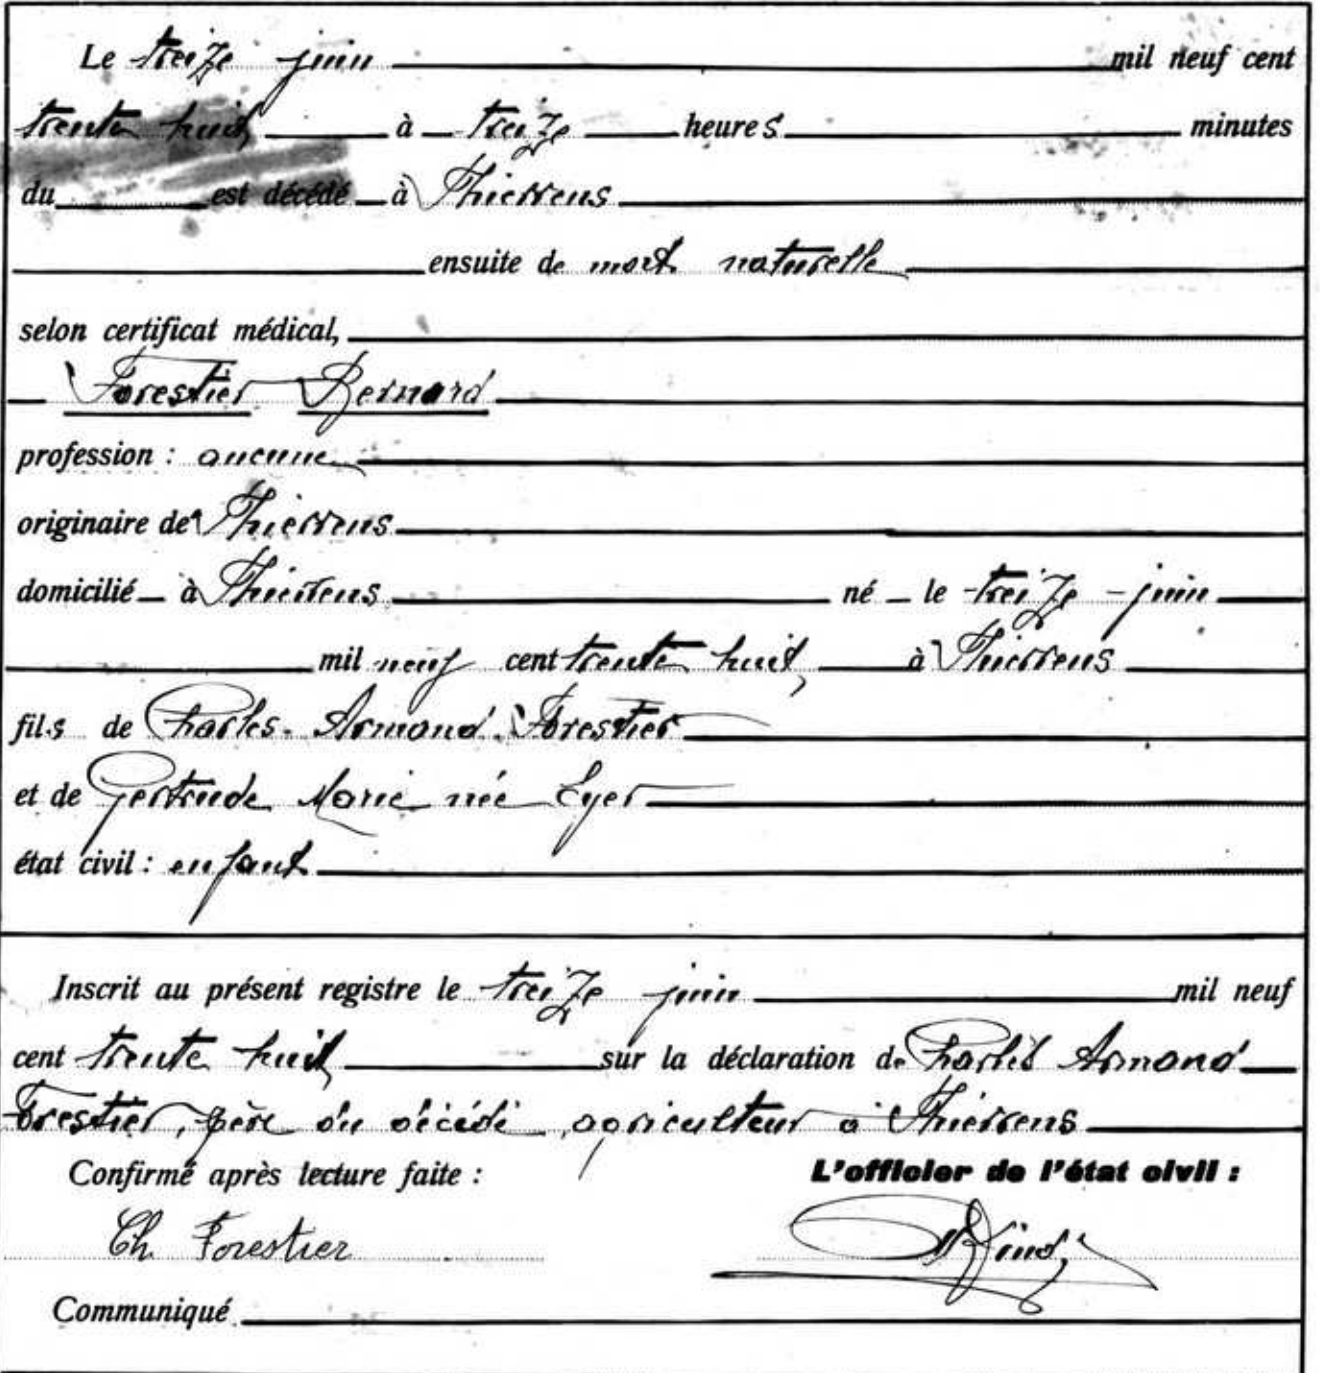 Le treize juin mil neuf cent
trente huit à treize heures minutes
du est décédé à Thierrens
ensuite de mort naturelle
selon certificat médical,
Forestier Bernard
profession : aucune
originaire de Thierrens
domicilié à Thierrens né le treize juin
mil neuf cent trente huit, à Thierrens
fils de Charles-Armand Forestier
et de Gertrude Marie née Eyer
état civil : enfant
Inscrit au présent registre le treize juin mil neuf
cent trente huit, sur la déclaration de Charles Armand
Forestier, père du décédé, agriculteur à Thierrens
Confirmé après lecture faite : L'officier de l'état civil :
Ch. Forestier
Communiqué